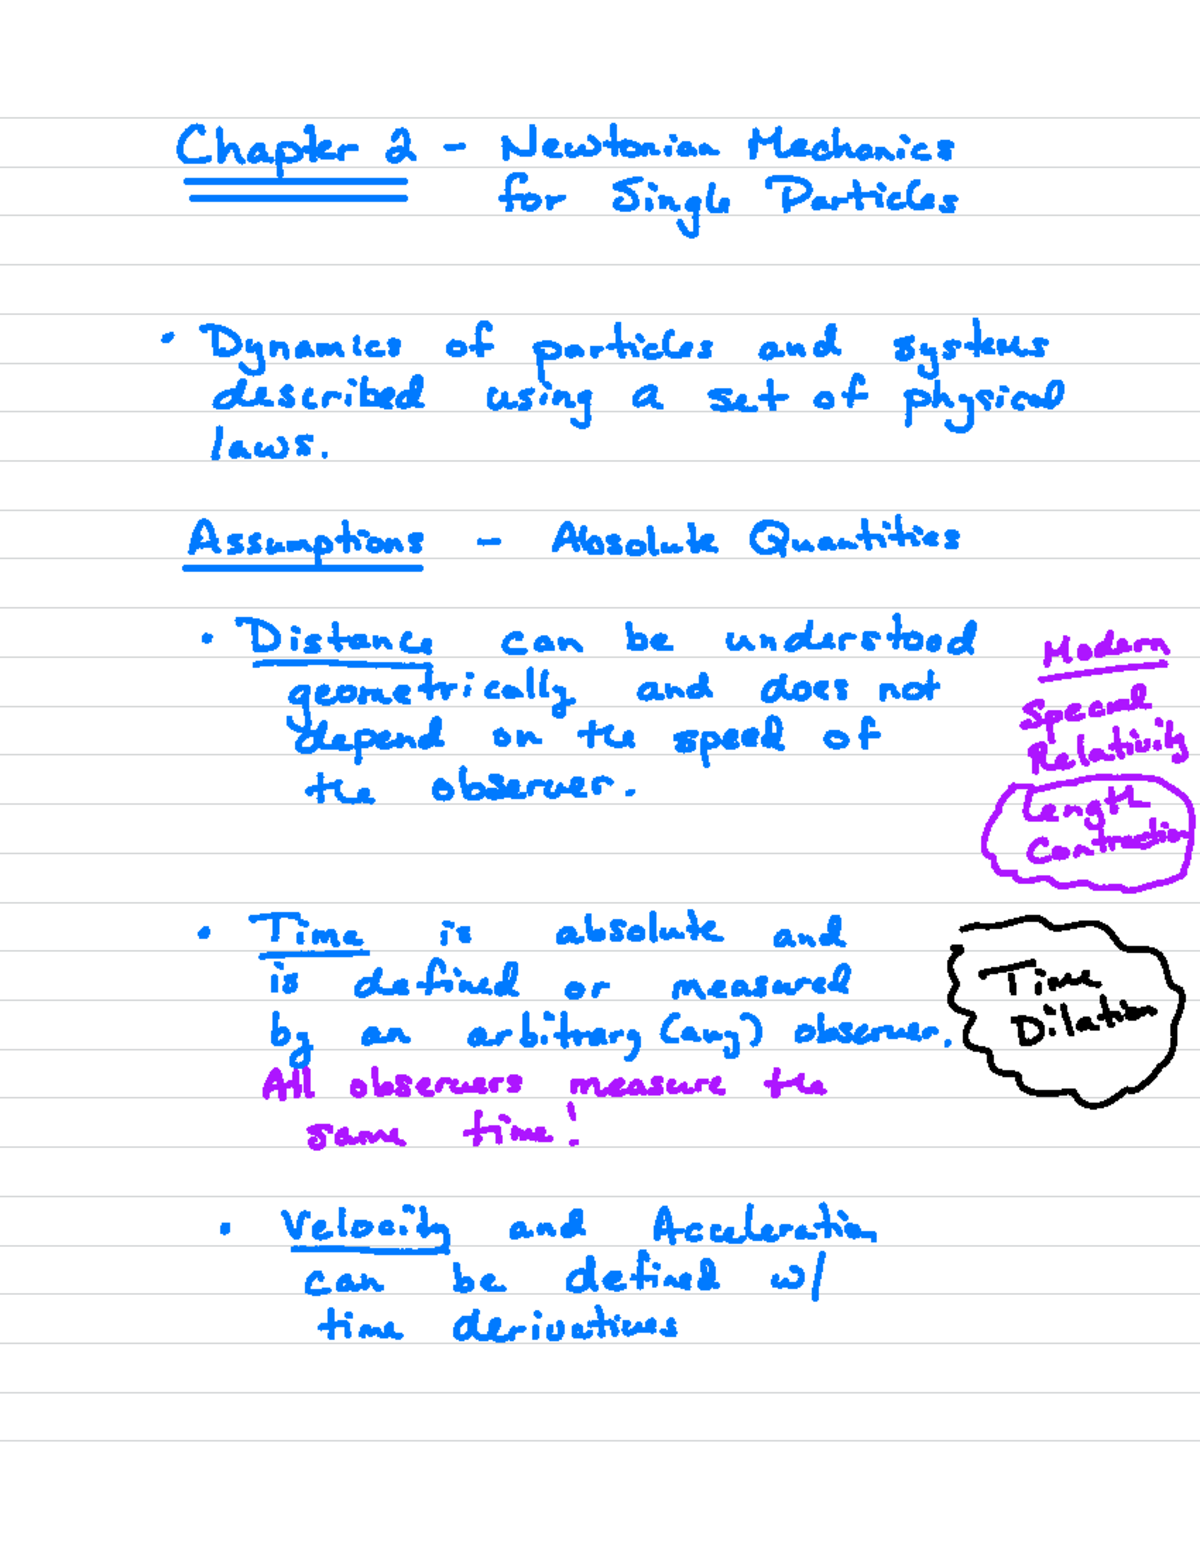 Chapter 2 - Newtonian Mechanics
for Single Particles
• Dynamics of particles and systems
described using a set of physical
laws.
Assumptions - Absolute Quantities
• Distance can be understood
geometrically and does not
depend on the speed of
the observer.
Modern
Special
Relativity
Length
Contraction
• Time is absolute and
is defined or measured
by an arbitrary (any) observer.
All observers measure the
same time!
Time
Dilation
• Velocity and Acceleration
can be defined w/
time derivatives